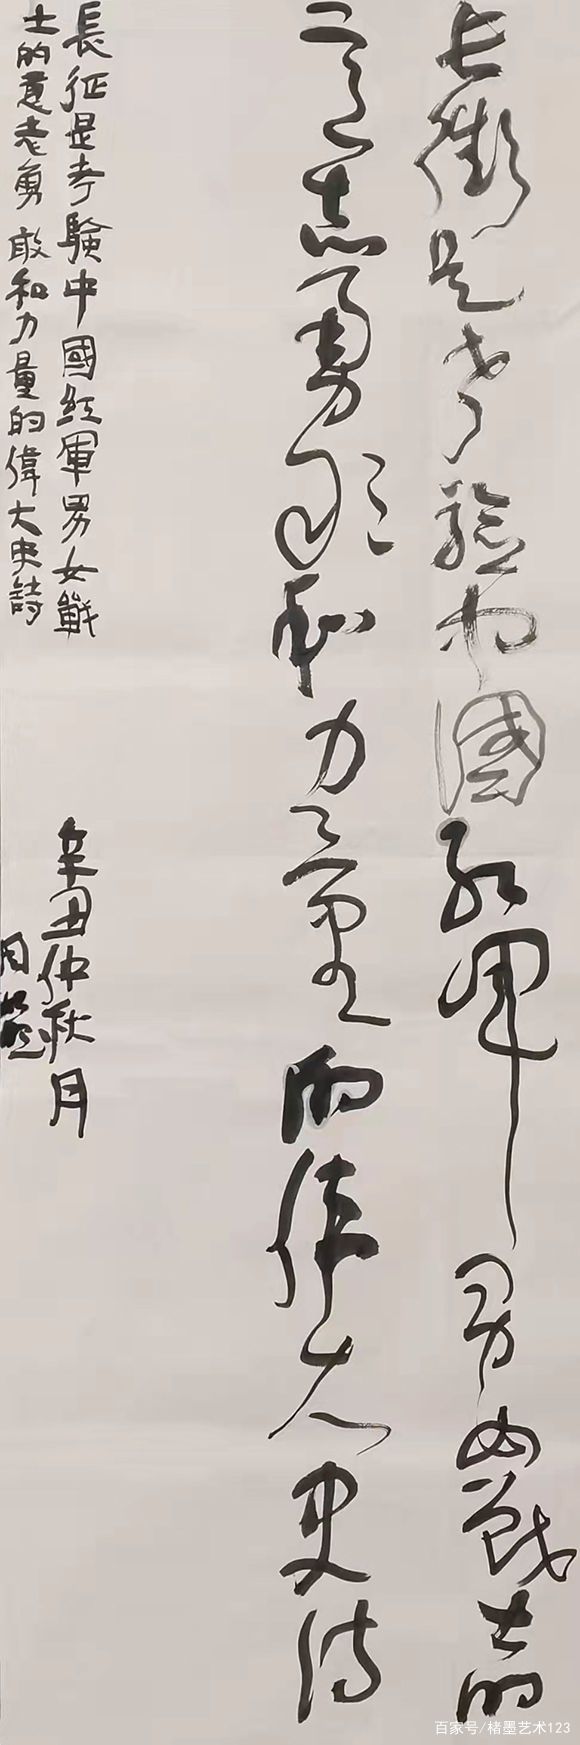 长征是考验中國红军男女战士的
意志勇敢和力量的伟大史诗
長征是考験中國红軍男女戰
士的意志勇敢和力量的偉大史詩
辛丑仲秋月
百家号/楮墨艺术123